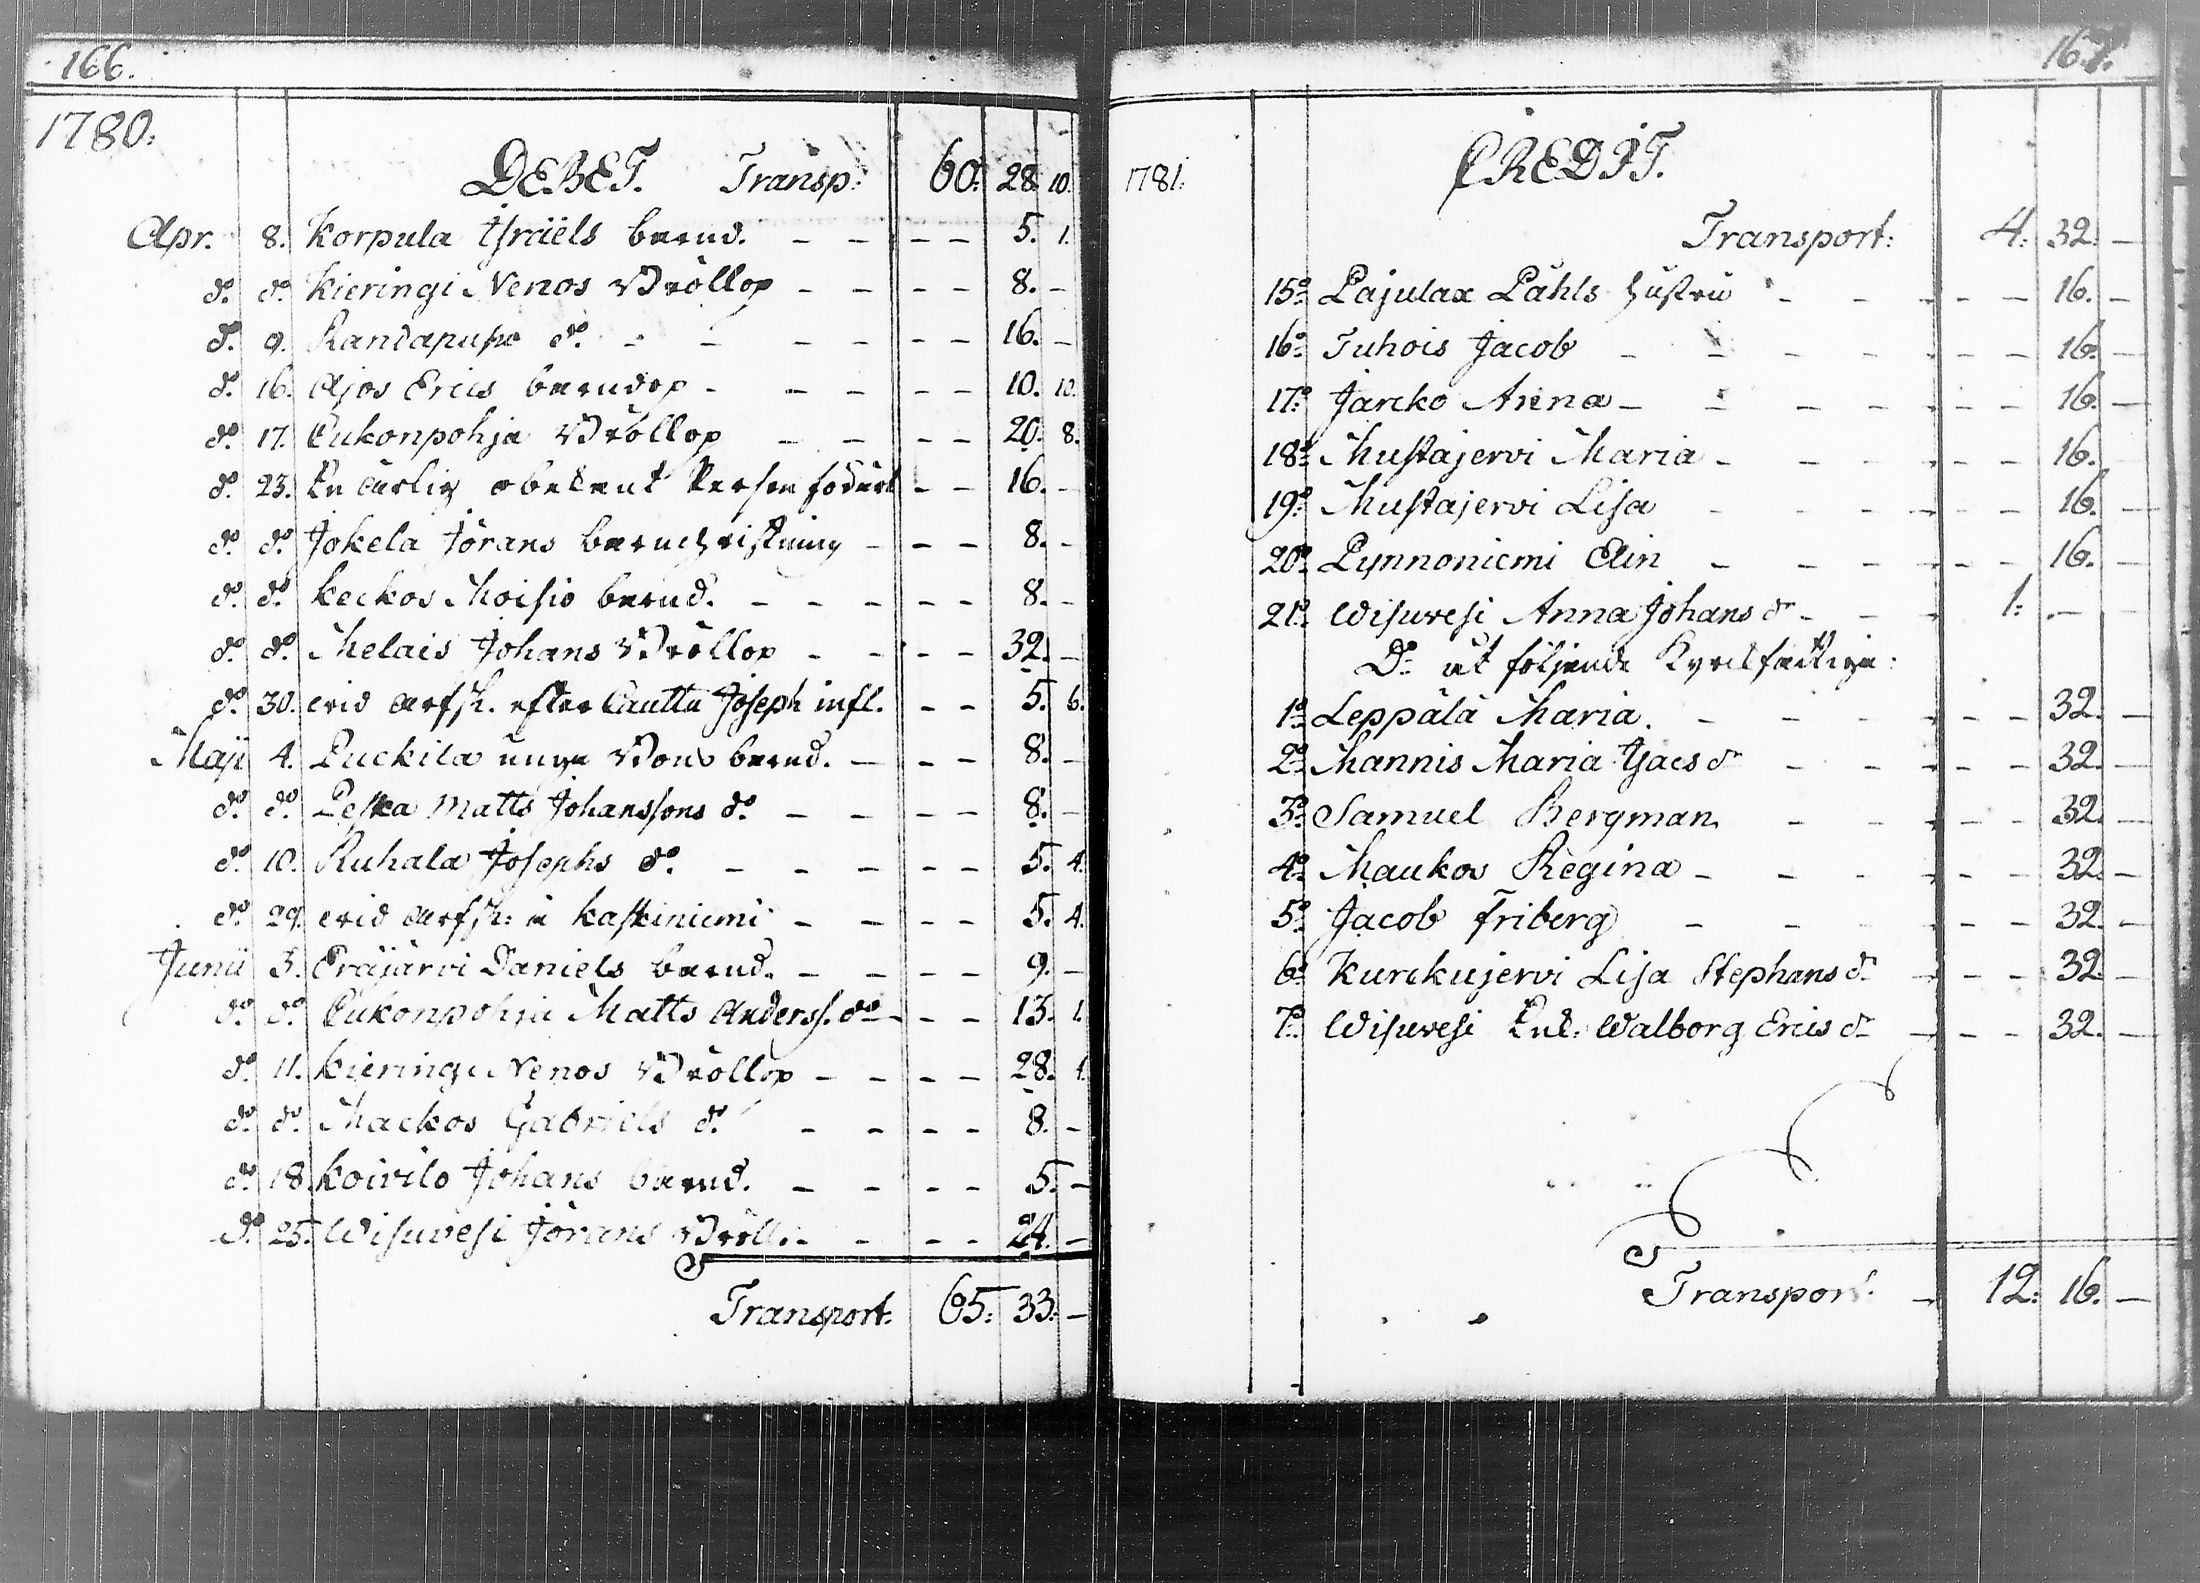 166.
1780.
DEBET. Transp: 60: 28. 10.
Apr. 8. Korpula Israëls barnd. - - - - 5. 1.
do. do. Kieringi Nenos Bröllop - - - - 8. -
do. 9. Randapupo do. - - - - - - 16. -
do. 16. Ajos Erics barndop - - - - - 10. 10.
do. 17. Lukonpohja Bröllop - - - - 20. 8.
do. 23. En ärlig obekant Person förärt - - 16. -
do. do. Jokela Jörans barnchristning - - - 8. -
do. do. Keckos Moisio barnd. - - - - - 8. -
do. do. Melais Johans Bröllop - - - - 32. -
do. 30. vid arfsk. efter Lautta Joseph infl. - - 5. 6.
Maji 4. Puckila unga Bonds barnd. - - - 8. -
do. do. Peska Matts Johanssons do. - - - - 8. -
do. 10. Ruhala Josephs do. - - - - - 5. 4.
do. 29. vid arfsk: i Kaskiniemi - - - - 5. 4.
Junii 3. Oräjärvi Daniels barnd. - - - - 9. -
do. do. Lukonpohja Matts Anderss. do - - - 13. 1.
do. 11. Kieringi Nenos Bröllop - - - - 28. 1.
do. do. Mackos Gabriels do. - - - - 8. -
do. 18. Koivilo Johans barnd. - - - - 5. -
do. 25. Wisuvesi Jörans Bröll. - - - - 24. -
Transport. 65: 33: -
167.
1781.
CREDIT.
Transport: 4: 32: -
15o Pajulax Påhls hustru - - - - - 16. -
16o Tuhois Jacob - - - - - - - 16. -
17o Jarcko Anna - - - - - - - 16. -
18o Mustajervi Maria - - - - - - 16.
19o Mustajervi Lisa - - - - - - 16. -
20o Pynnoniemi Elin - - - - - - 16. -
21o Wisuvesi Anna Johans dr - - - 1: - -
Do åt följande Kyrckfattiga:
1o Leppälä Maria. - - - - - - 32. -
2o Mannis Maria Isacs dr - - - - - 32. -
3o Samuel Bergman - - - - - 32. -
4o Maukos Regina - - - - - - 32. -
5o Jacob Friberg - - - - - - 32. -
6o Kurckujervi Lisa Stephans dr - - - 32. -
7o Wisuvesi Enk. Walborg Erics dr - - - 32. -
Transport. - 12: 16. -